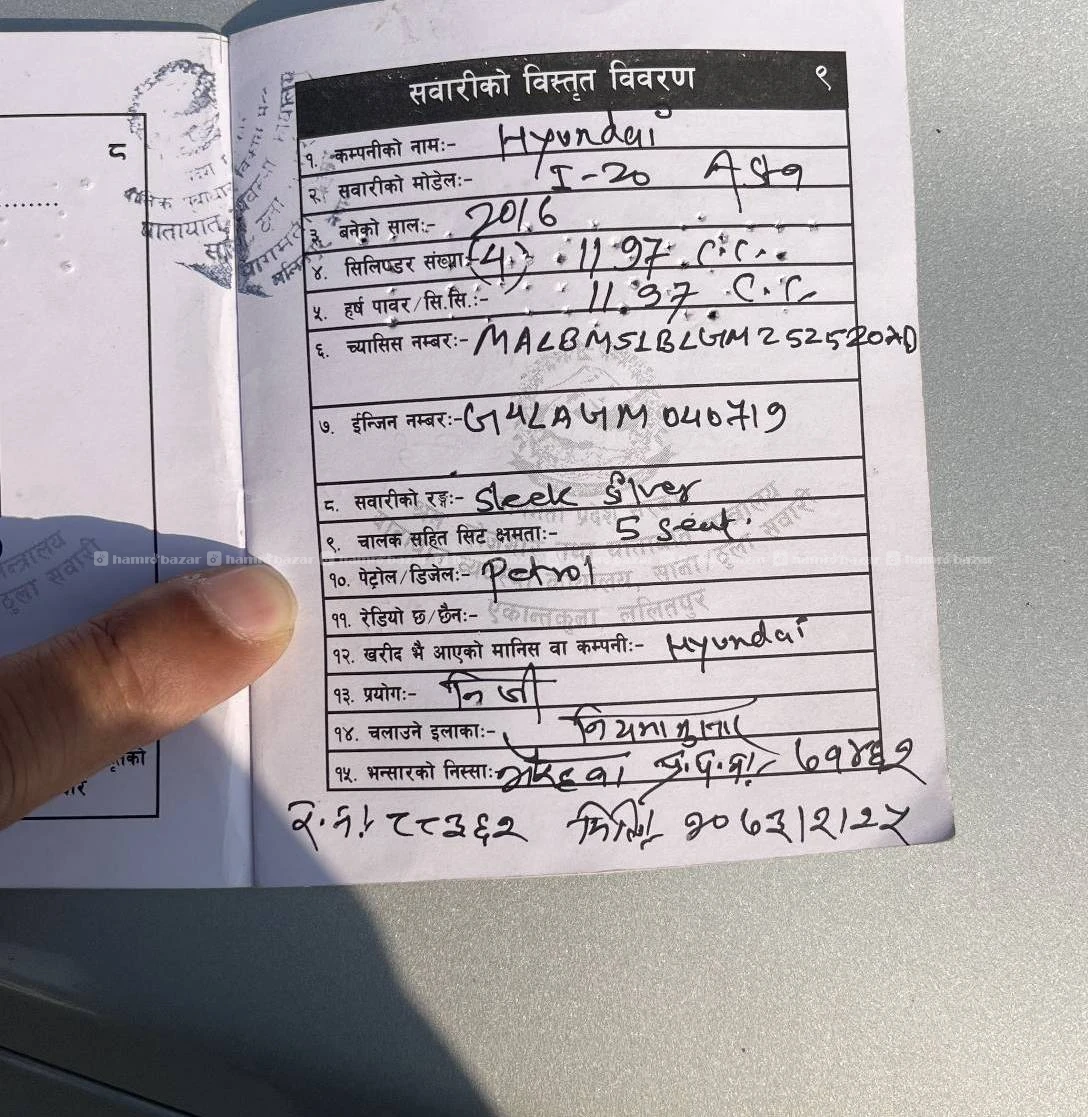 ८
सवारीको विस्तृत विवरण ९
१. कम्पनीको नामः- Hyundai
२. सवारीको मोडेलः- I-20 Asta
३. बनेको सालः- 2016
४. सिलिण्डर संख्याः- (4) 1197 C.C.
५. हर्ष पावर/सि.सि.ः- 1197 C.C.
६. च्यासिस नम्बरः-
७. ईन्जिन नम्बरः- G4LAGM040719
८. सवारीको रङ्गः- Sleek Silver
९. चालक सहित सिट क्षमताः- 5 Seat.
१०. पेट्रोल/डिजेलः- Petrol
११. रेडियो छ/छैनः-
एकान्तकुना ललितपुर
१२. खरीद भै आएको मानिस वा कम्पनीः- Hyundai
१३. प्रयोगः- निजी
१४. चलाउने इलाकाः- नियमानुसार
१५. भन्सारको निस्साः- भैरहवा प्र.प.नं.
र.नं. ८८३६२ मिति
hamrobazar hamrobazar hamrobazar hamrobazar hamrobazar hamrobazar hamrobazar hamrobazar